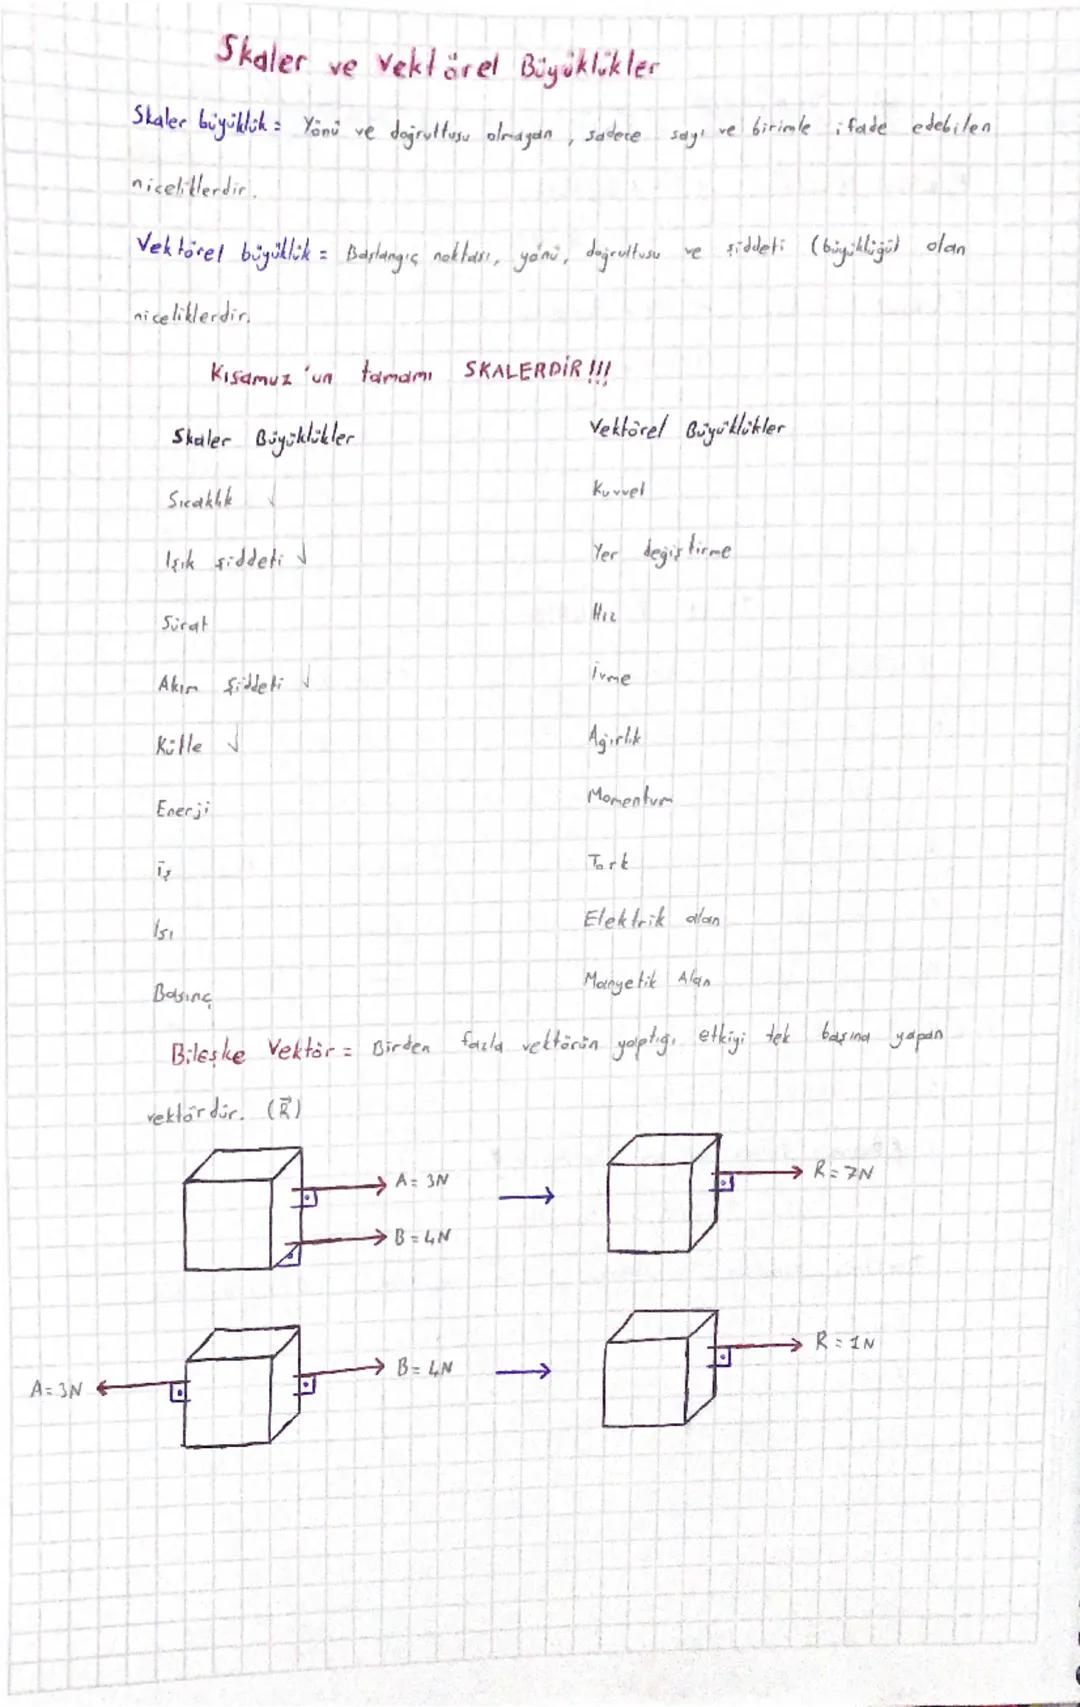 Skaler ve Vektörel Büyüklükler
Skaler büyüklük = Yönü ve doğrultusu olmayan, sadece sayı ve birimle ifade edebilen
niceliklerdir.
Vektörel büyüklük = Başlangıç noktası, yönü, doğrultusu ve şiddeti (büyüklüğü) olan
niceliklerdir.
Kısamuz'un tamamı SKALERDİR!!!
Skaler Büyüklükler
Vektörel Büyüklükler
Sıcaklık ✓
Kuvvet
Işık şiddeti ✓
Yer değiştirme
Sürat
Hız
Akım Şiddeti ✓
İvme
Kütle ✓
Ağırlık
Enerji
Momentum
İş
Tork
Isı
Elektrik alan
Basınç
Manyetik Alan
Bileşke Vektör = Birden fazla vektörün yaptığı etkiyi tek başına yapan
vektördür. (R⃗)
A = 3N
R = 7N
B = 4N
A = 3N
B = 4N
R = 1N